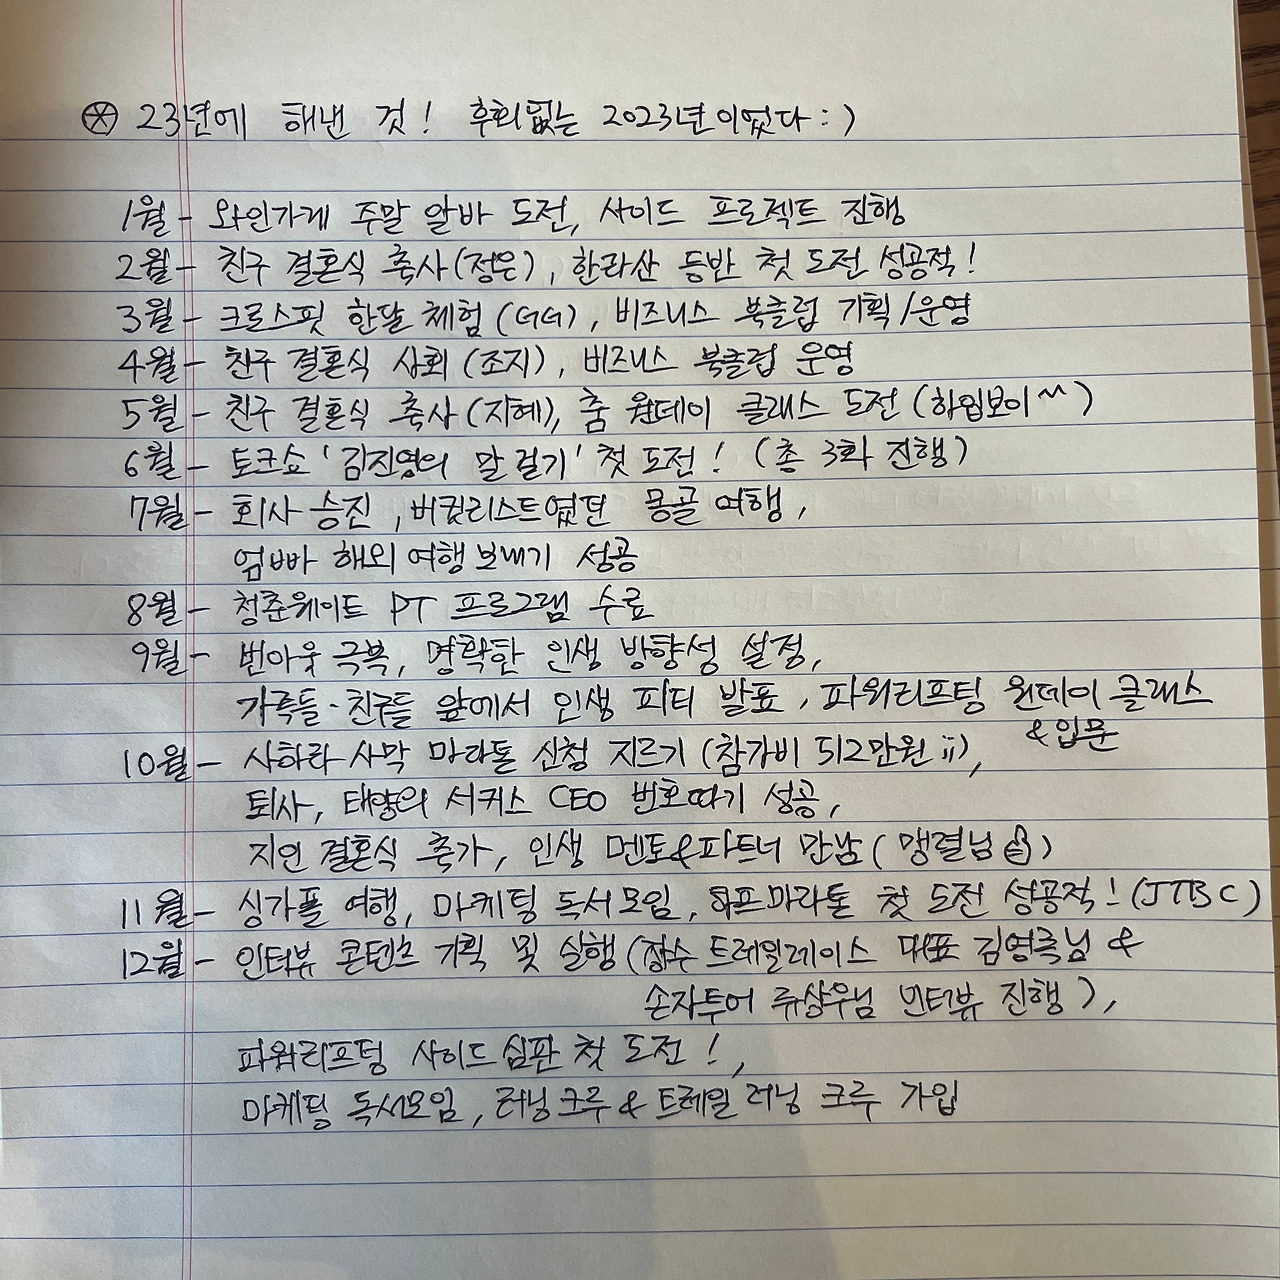 ⊛ 23년에 해낸 것! 후회없는 2023년이었다 :)
1월 - 와인가게 주말 알바 도전, 사이드 프로젝트 진행
2월 - 친구 결혼식 축사(정은), 한라산 등반 첫 도전 성공적!
3월 - 크로스핏 한달 체험(GG), 비즈니스 북클럽 기획/운영
4월 - 친구 결혼식 사회(조지), 비즈니스 북클럽 운영
5월 - 친구 결혼식 축사(지혜), 춤 원데이 클래스 도전(하입보이^^)
6월 - 토크쇼 '김진영의 말 걸기' 첫 도전! (총 3화 진행)
7월 - 회사 승진, 버킷리스트였던 몽골 여행,
엄빠 해외여행 보내기 성공
8월 - 청춘웨이트 PT 프로그램 수료
9월 - 번아웃 극복, 명확한 인생 방향성 설정,
가족들·친구들 앞에서 인생 피티 발표, 파워리프팅 원데이 클래스
& 입문
10월 - 사하라 사막 마라톤 신청 지르기(참가비 512만원 ;;),
퇴사, 태양의 서커스 CEO 번호따기 성공,
지인 결혼식 축가, 인생 멘토&파트너 만남(맹렬님)
11월 - 싱가폴 여행, 마케팅 독서모임, 하프마라톤 첫 도전 성공적! (JTBC)
12월 - 인터뷰 콘텐츠 기획 및 실행(장수 트레일레이스 대표 김영록님 &
손자투어 류상우님 인터뷰 진행),
파워리프팅 사이드 심판 첫 도전!,
마케팅 독서모임, 러닝크루 & 트레일 러닝 크루 가입